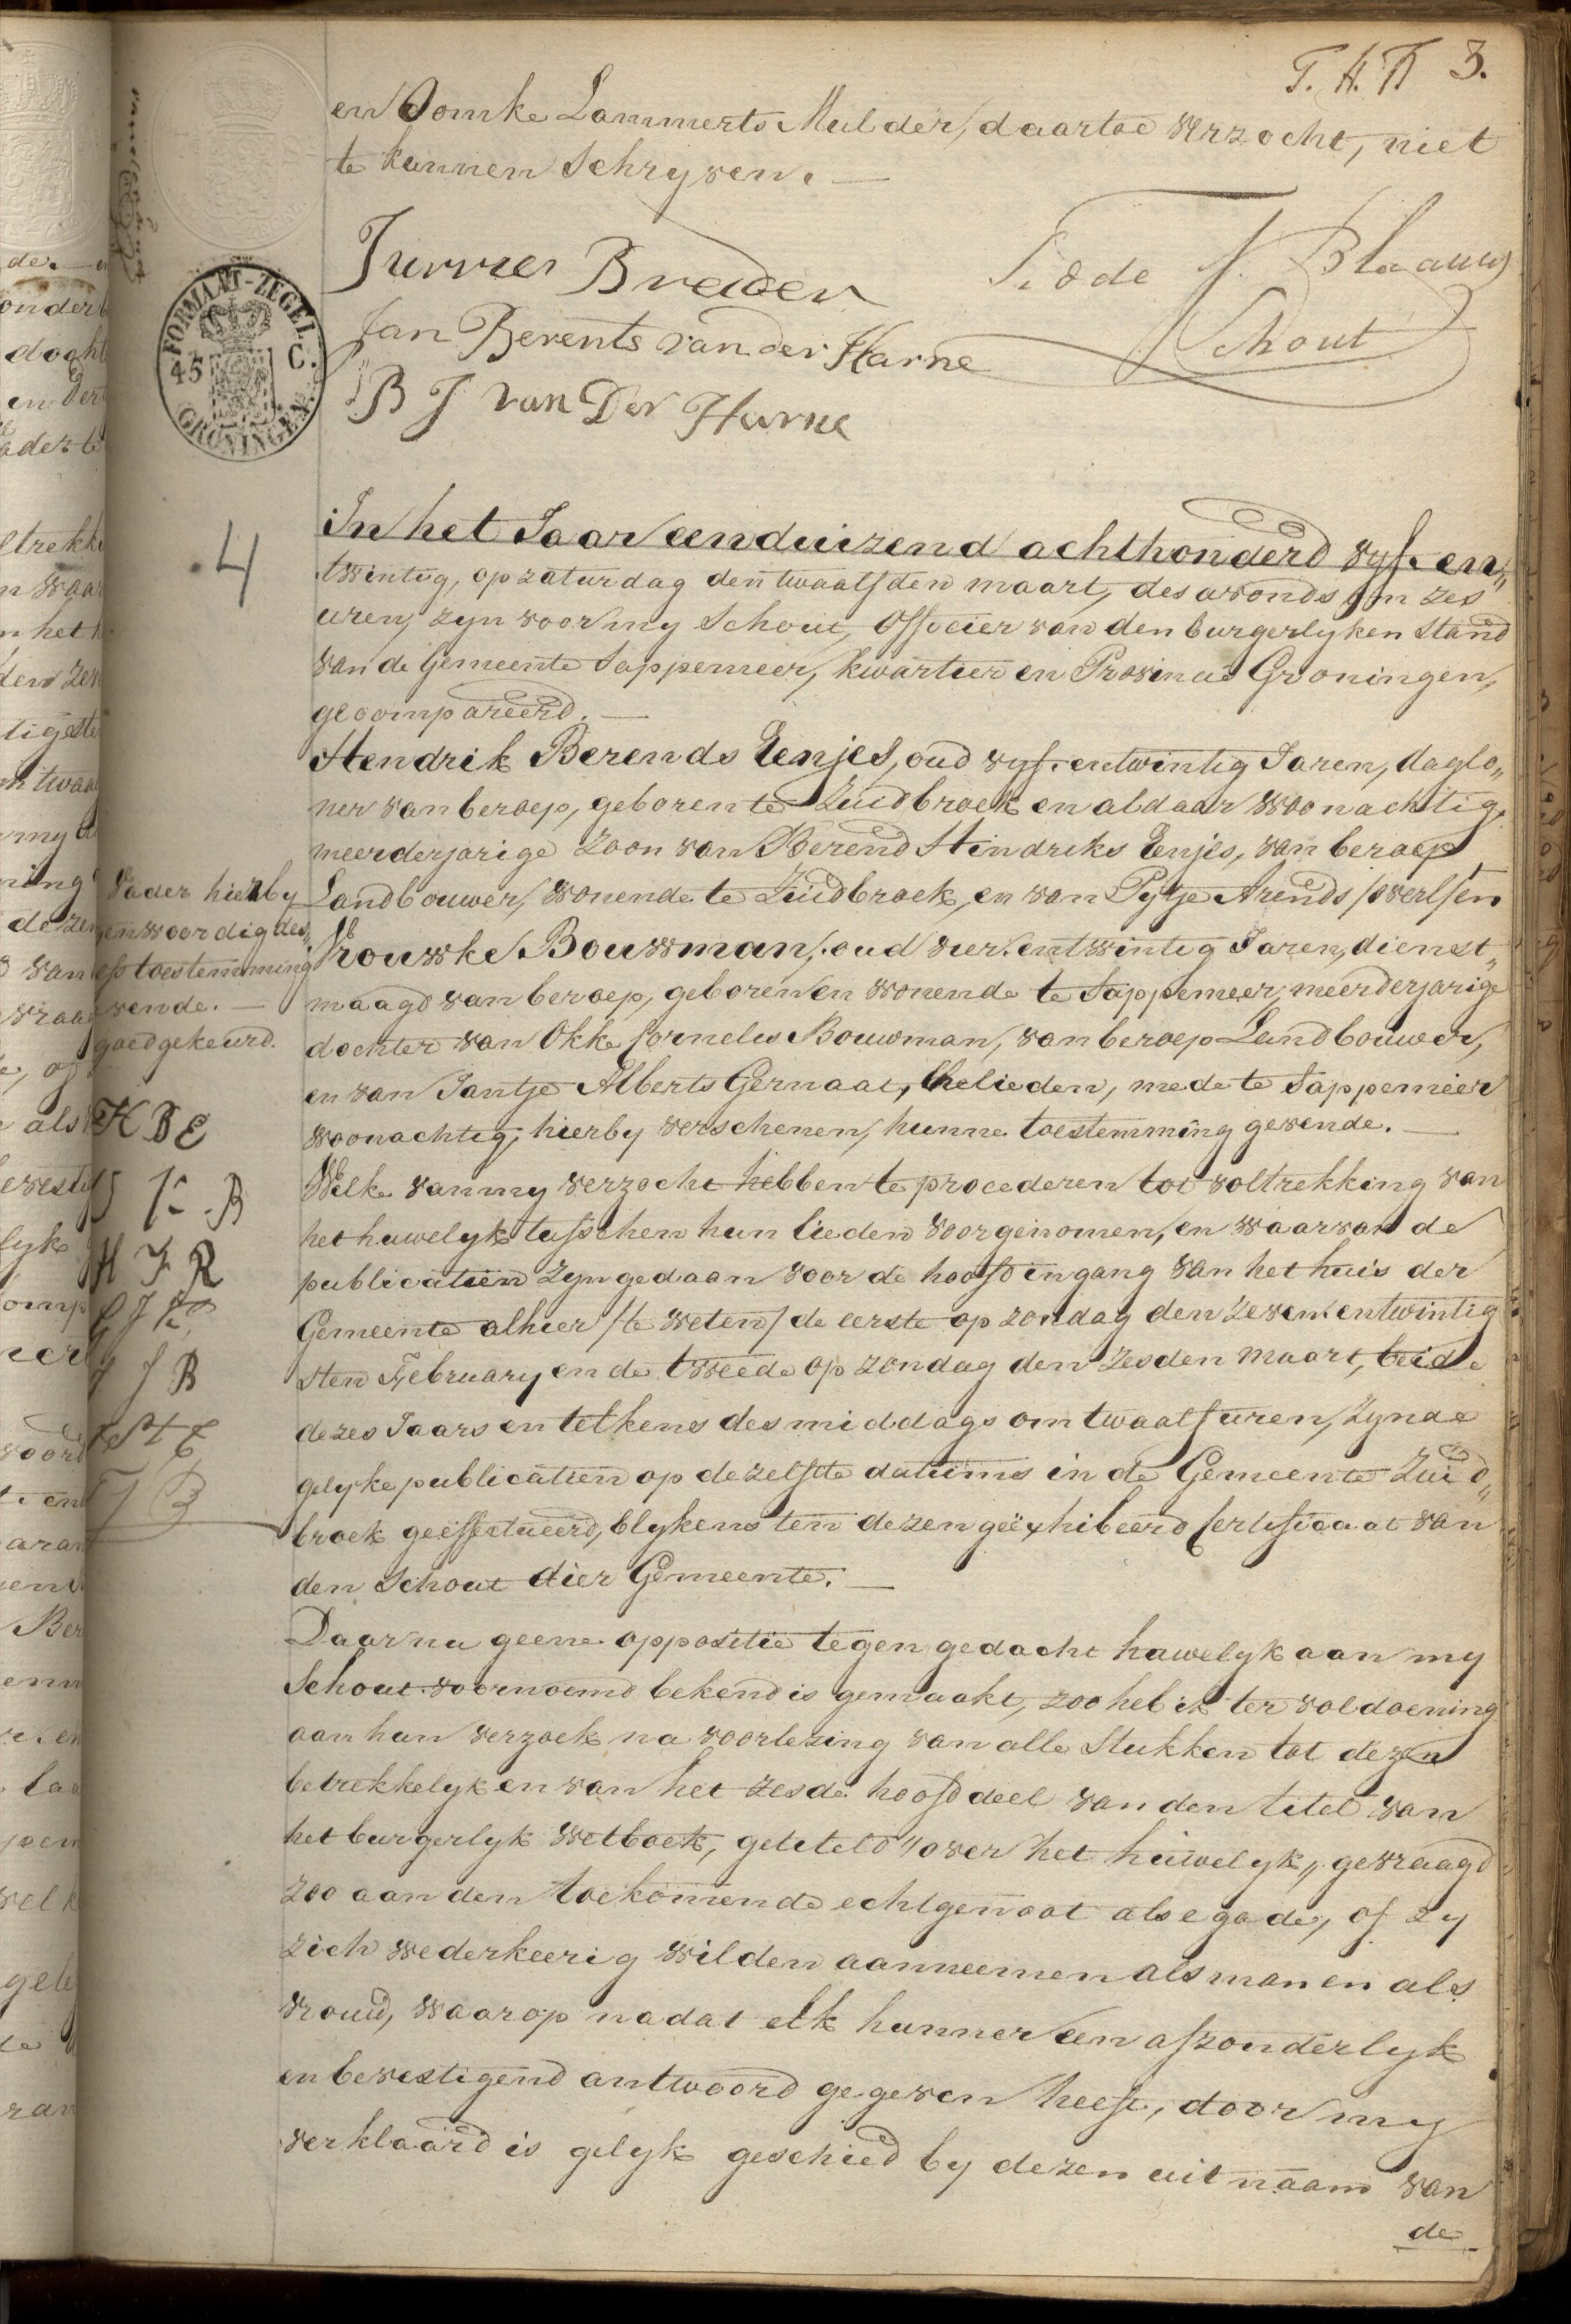 T. H. T 3.
en Domke Lammerts Mulder, daartoe verzocht, niet
te kunnen Schryven. —
Jurrien Breder
Jan Berents van der Harne
B J van Der Harne
Fidde J. Blaauw
Schout
FORMAAT-ZEGEL
45 C.
GRONINGEN.
4
In het Jaar eenduizend achthonderd vyf-en„
twintig, op zaturdag den twaalfden maart, des avonds om zes
uren, zyn voor my Schout, Officier van den burgerlyken Stand
van de Gemeente Sappemeer, kwartier en Provincie Groningen,
gecompareerd. —
Hendrik Berends Eenjes, oud vyf-entwintig Jaren, daglo„
ner van beroep, geboren te Zuidbroek en aldaar woonachtig,
meerderjarige zoon van Berend Hindriks Eenjes, van beroep
Landbouwer, wonende te Zuidbroek, en van Pytje Arends /overl/en
Vrouwke Bouwman, oud vier-entwintig Jaren, dienst„
maagd van beroep, geboren en wonende te Sappemeer, meerderjarige
dochter van Okke Cornelis Bouwman, van beroep Landbouwer,
en van Jantje Alberts Gernaat, Ehelieden, mede te Sappemeer
woonachtig, hierby verschenen, hunne toestemming gevende. —
Vader hierby
enwoordig des„
efs toestemming
vende. —
goedgekeurd.
H B E
V K B
H J R
J B
Welke van my verzocht hebben te procederen tot voltrekking van
het huwelyk tusschen hun lieden voorgenomen, en waarvan de
publicatien zyn gedaan voor de hoofdingang van het huis der
Gemeente alhier /te weten/ de eerste op zondag den zeven-entwintig
sten February en de tweede op zondag den zesden maart, beide
dezes Jaars en telkens des middags om twaalf uren, zynde
gelyke publicatien op dezelfde datums in de Gemeente Zuid„
broek geëffectueerd, blykens ten dezen geëxhibeerd Certificaat van
den Schout dier Gemeente. —
Daar nu geene oppositie tegen gedacht huwelyk aan my
Schout voornoemd bekend is gemaakt, zoo heb ik ter voldoening
aan hun verzoek na voorlezing van alle Stukken tot dezen
betrekkelyk en van het zesde hoofddeel van den titel van
het burgerlyk wetboek, getiteld „over het huwelyk„ gevraagd
zoo aan den toekomende echtgenoot als egade, of zy
zich wederkeerig wilden aanneemen als man en als
vrouw, waarop nadat elk hunner een afzonderlyk
en bevestigend antwoord gegeven heeft, door my
verklaard is gelyk geschied by dezen uit naam van
de